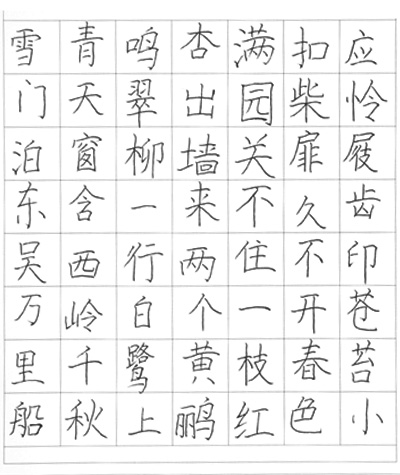 应怜屐齿印苍苔小
扣柴扉久不开春色
满园关不住一枝红
杏出墙来两个黄鹂
鸣翠柳一行白鹭上
青天窗含西岭千秋
雪门泊东吴万里船